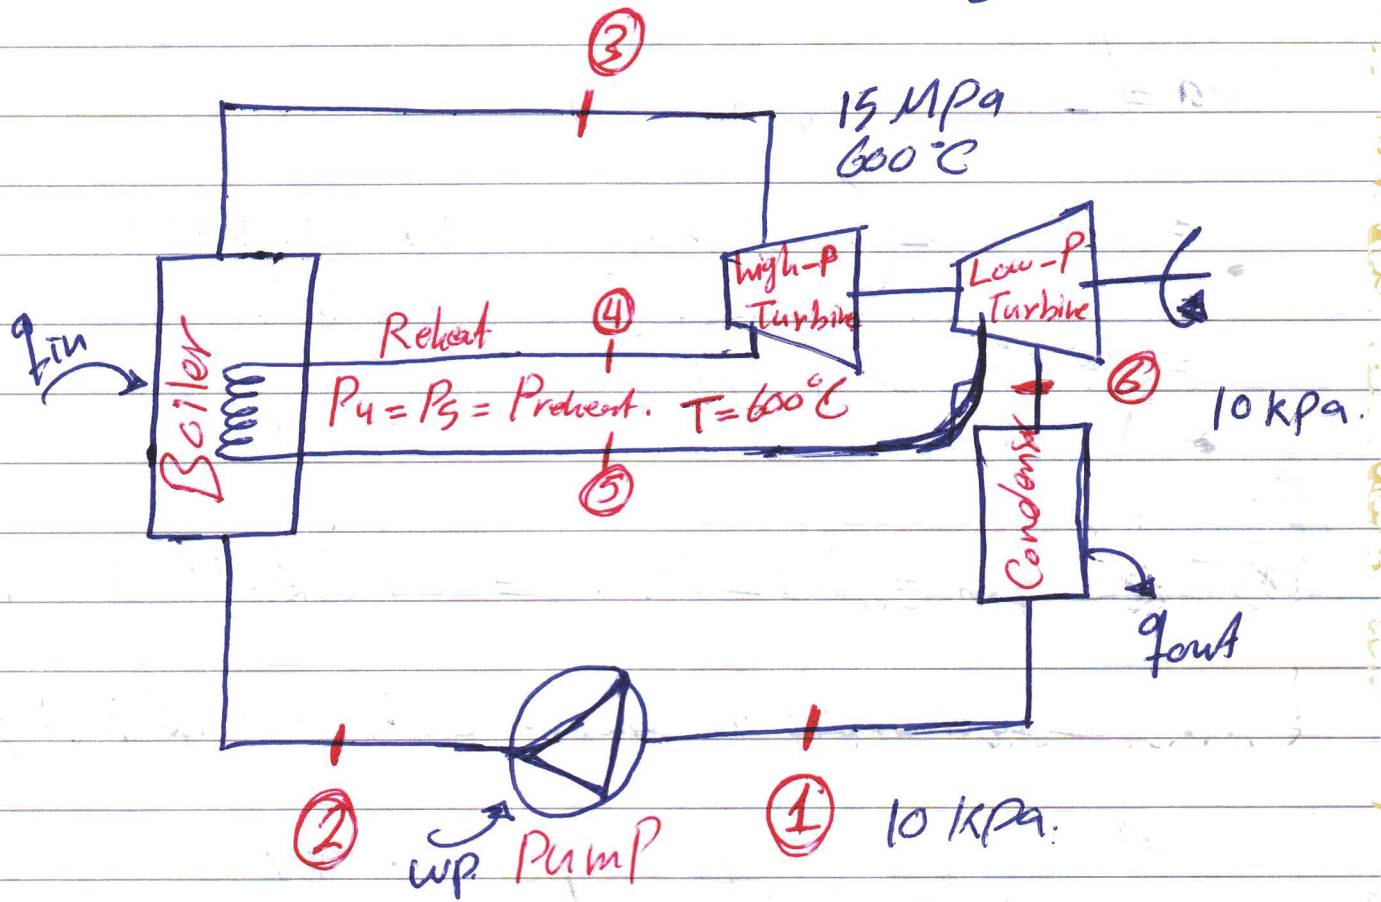 ③
15 MPa
600°C
high-P
Turbine
Low-P
Turbine
④
Reheat
qin
Boiler
P4 = P5 = Preheat. T=600°C
⑥
10 kpa.
⑤
Condenser
qout
②
wp.
PumP
①
10 kpa.